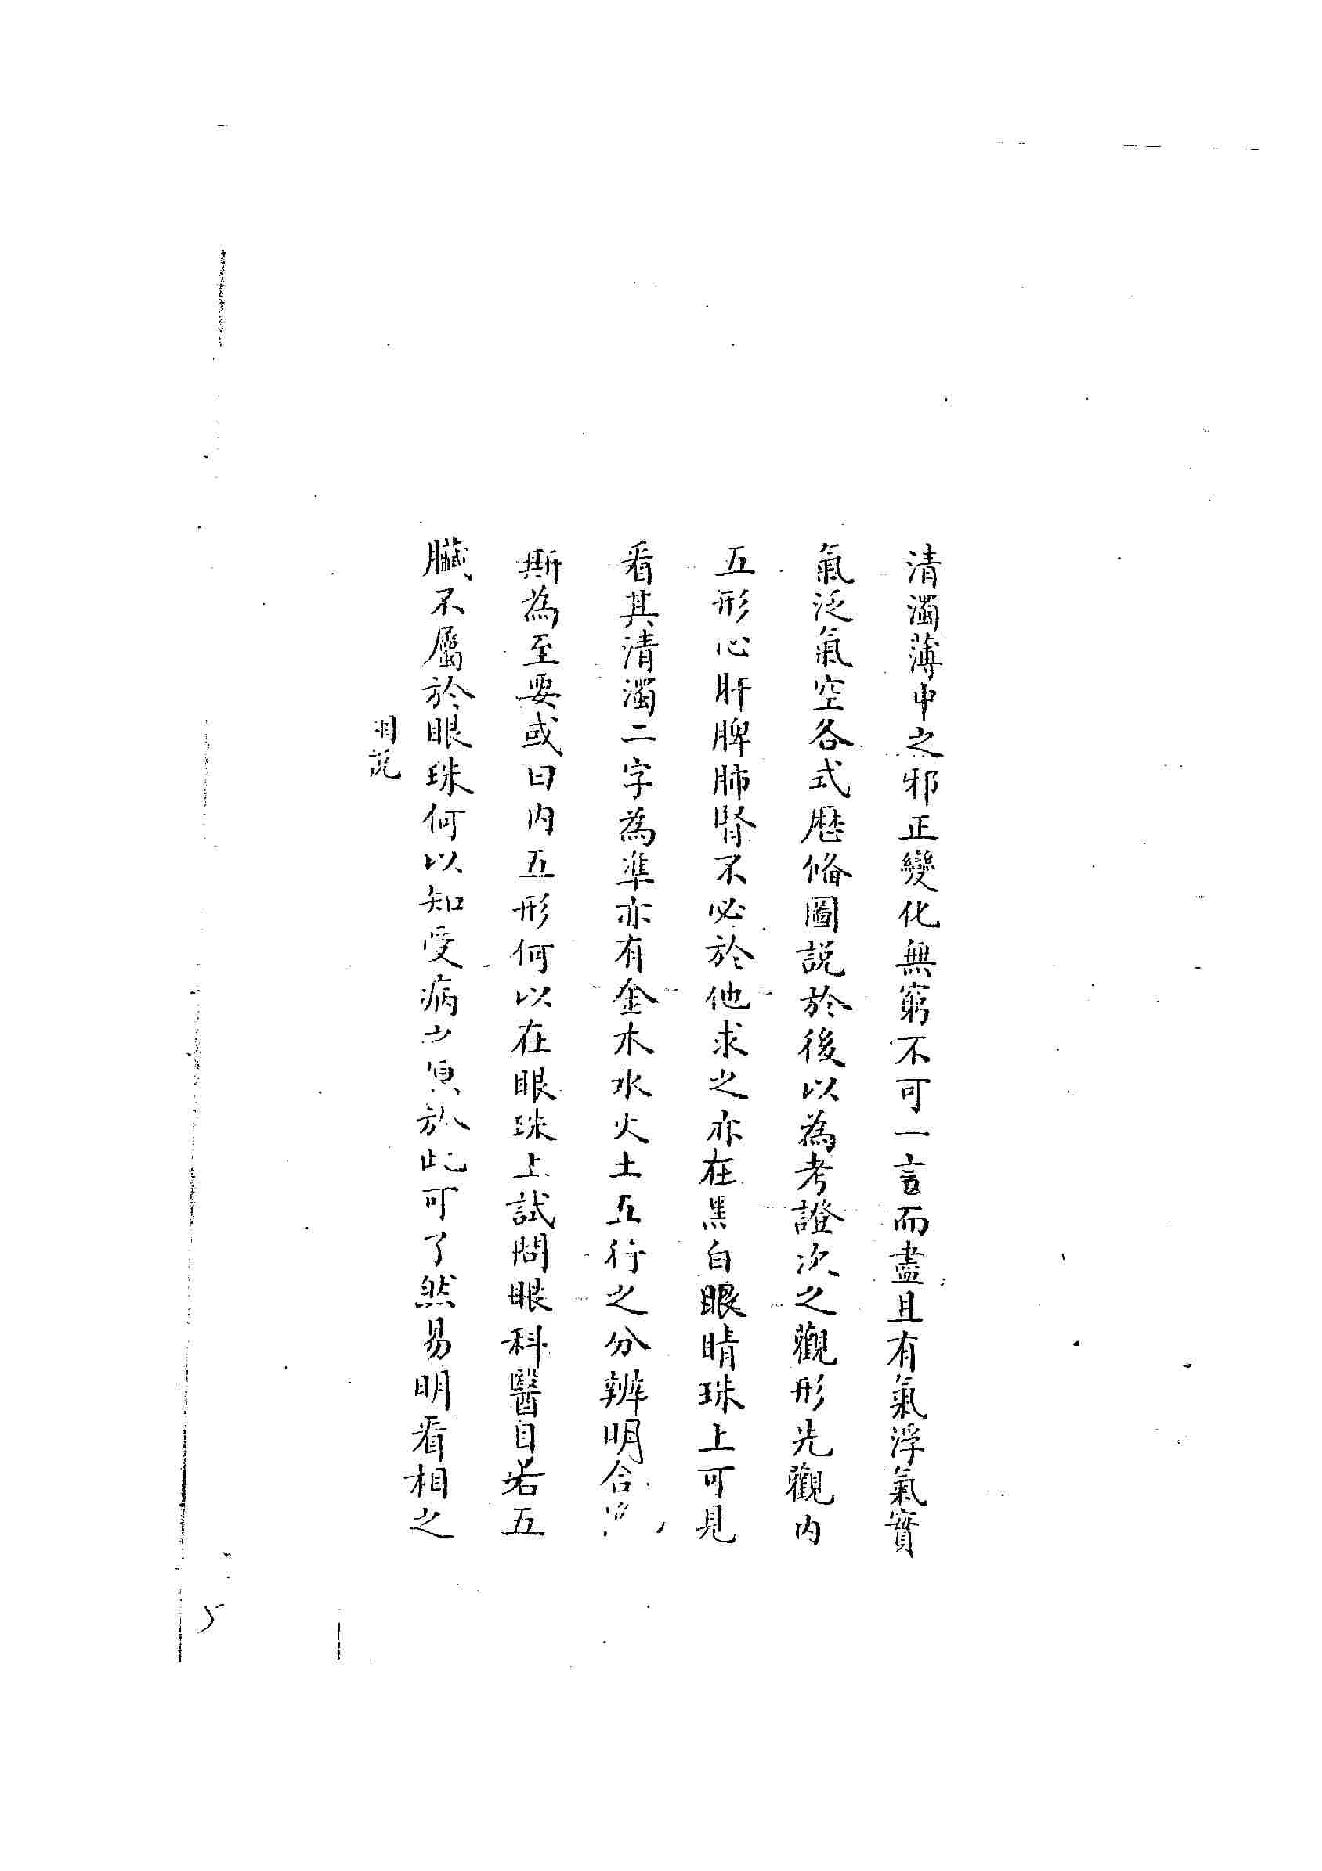 清濁薄中之邪正變化無窮不可一言而盡且有氣浮氣實
氣泛氣空各式歷脩圖說於後以為考證次之觀形先觀內
五形心肝脾肺腎不必於他求之亦在黑白眼睛珠上可見
看其清濁二字為準亦有金木水火土五行之分辨明合
斯為至要或曰內五形何以在眼珠上試問眼科醫目若五
臟不屬於眼珠何以知受病之原於此可了然易明看相之
說
5